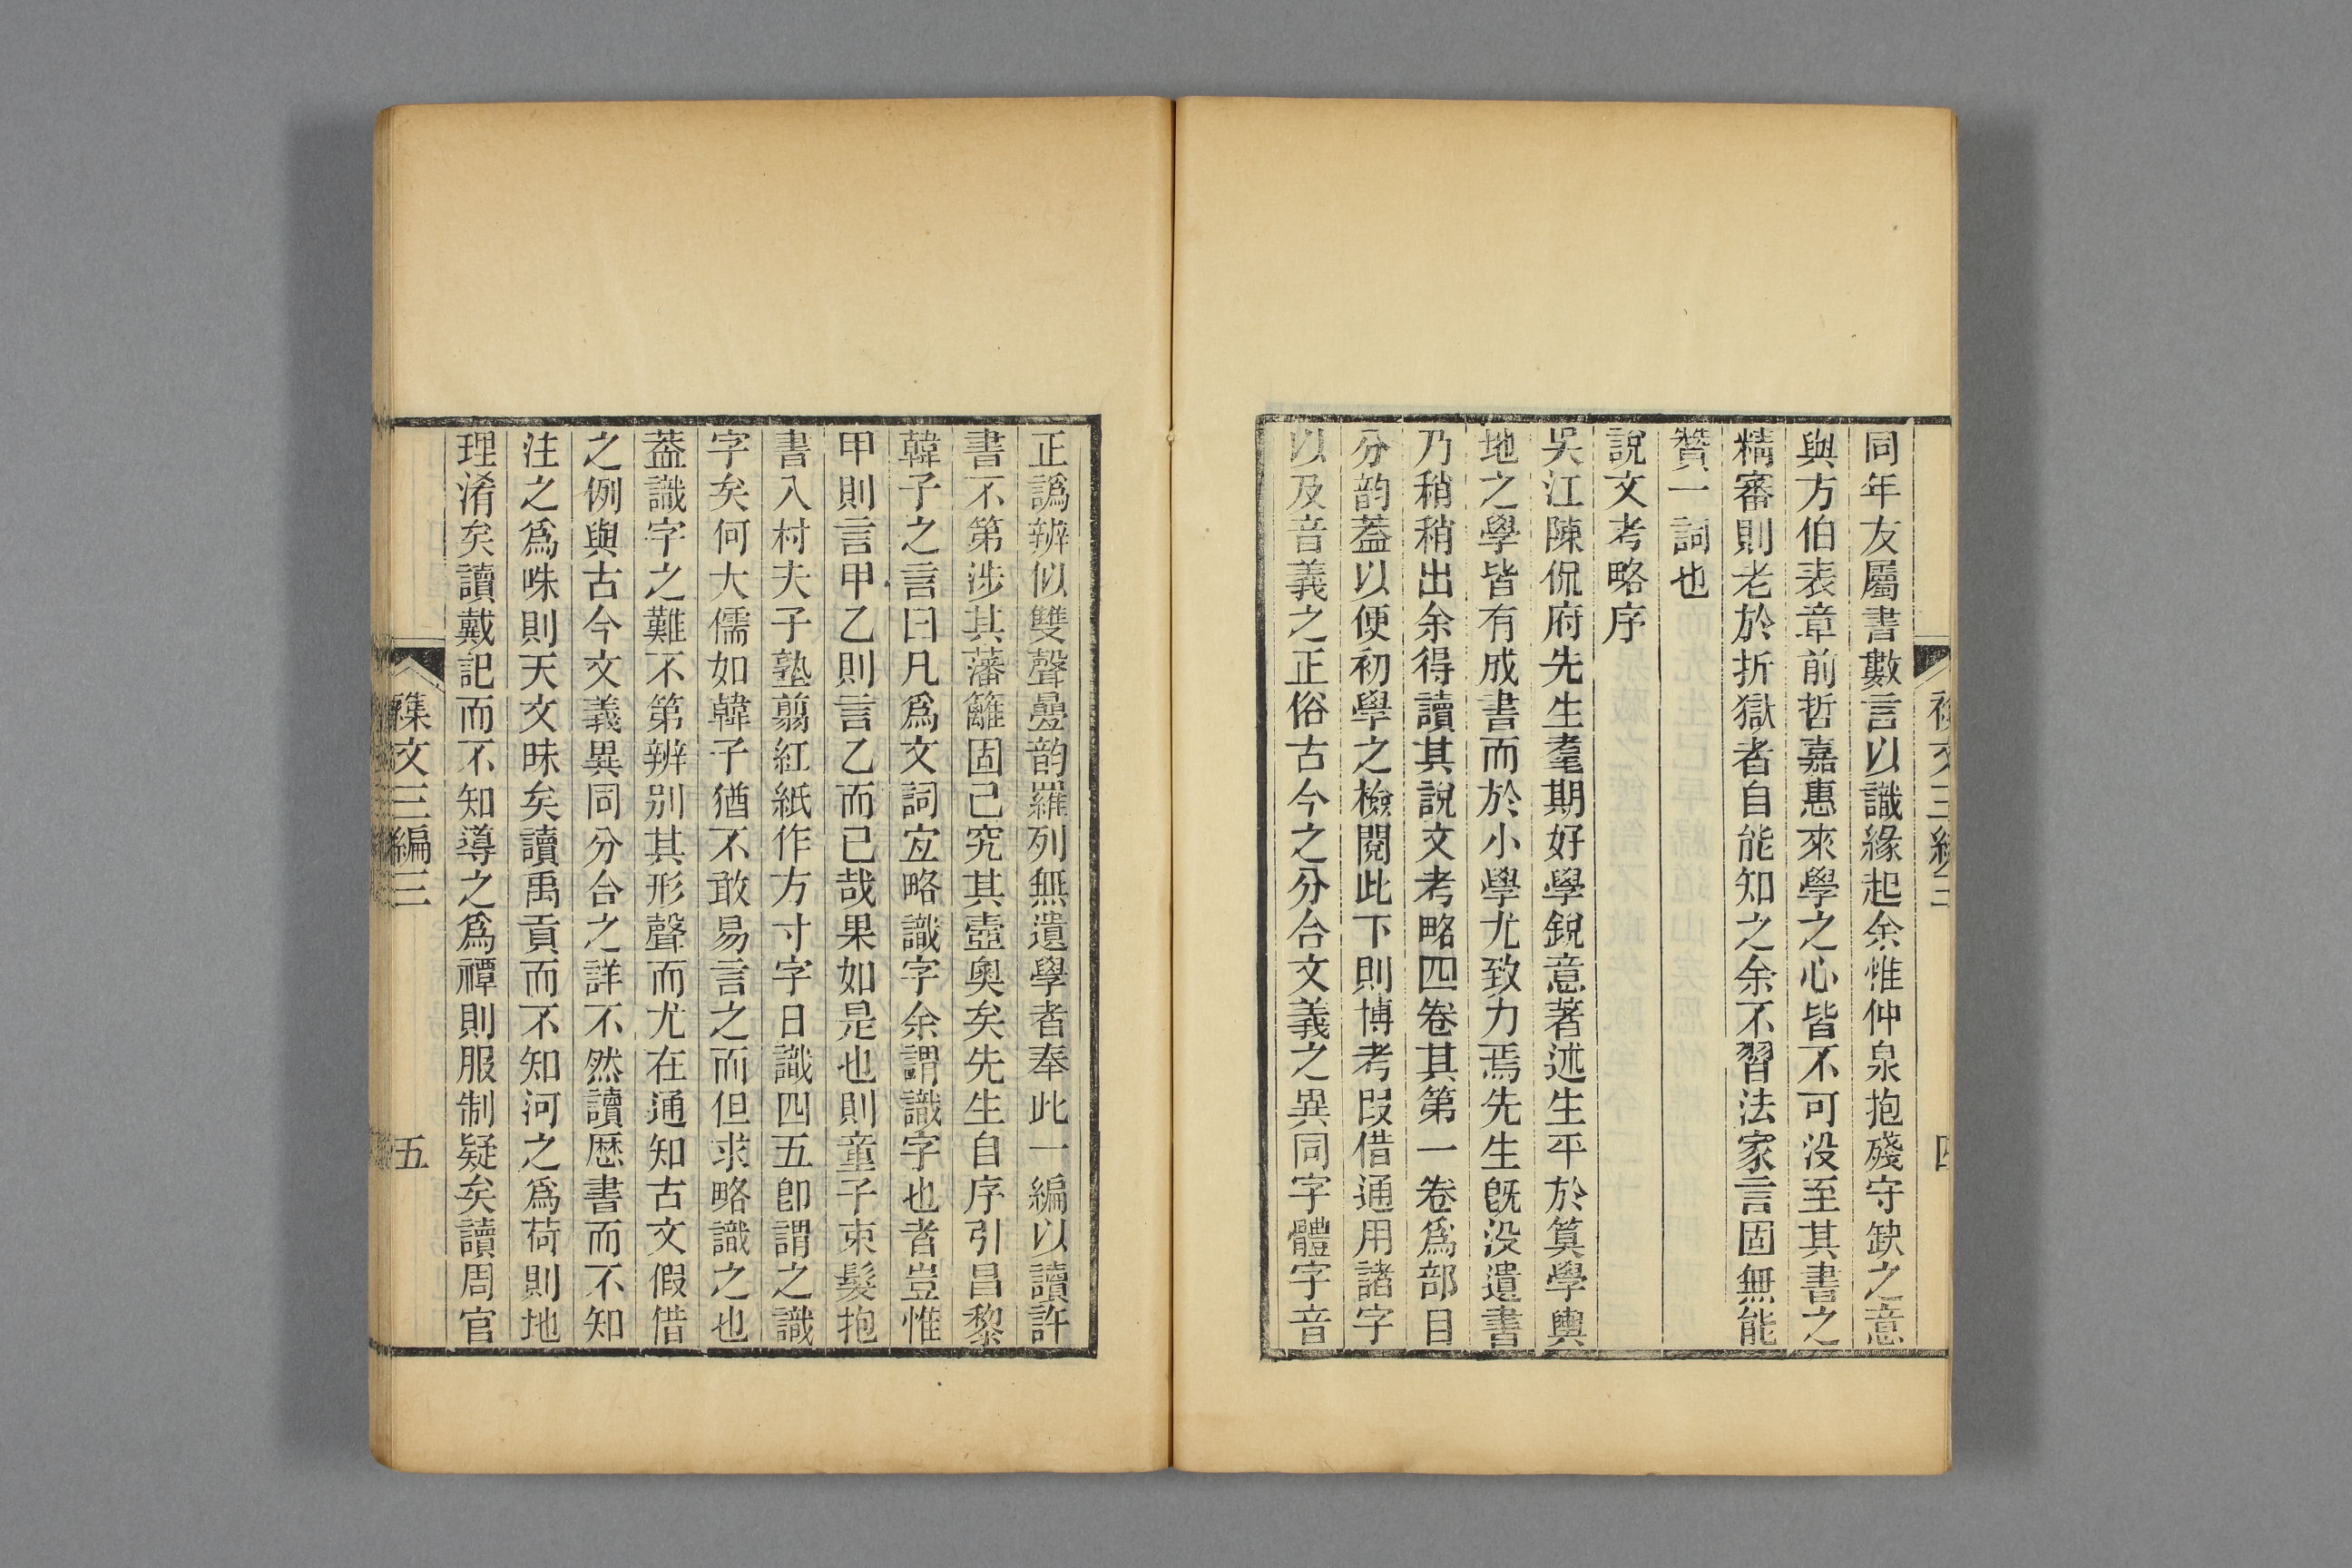 同年友屬書數言以識緣起余惟仲泉抱殘守缺之意
與方伯表章前哲嘉惠來學之心皆不可没至其書之
精審則老於折獄者自能知之余不習法家言固無能
贊一詞也
說文考略序
吳江陳侃府先生耄期好學銳意著述生平於算學輿
地之學皆有成書而於小學尤致力焉先生旣没遺書
乃稍稍出余得讀其說文考略四卷其第一卷爲部目
分韵葢以便初學之檢閱此下則博考叚借通用諸字
以及音義之正俗古今之分合文義之異同字體字音
正譌辨似雙聲疊韵羅列無遺學者奉此一編以讀許
書不第涉其藩籬固已究其壼奧矣先生自序引昌黎
韓子之言曰凡爲文詞宐略識字余謂識字也者豈惟
甲則言甲乙則言乙而已哉果如是也則童子束髮抱
書入村夫子塾翦紅紙作方寸字日識四五卽謂之識
字矣何大儒如韓子猶不敢易言之而但求略識之也
葢識字之難不第辨别其形聲而尤在通知古文假借
之例與古今文義異同分合之詳不然讀厯書而不知
注之爲咮則天文昧矣讀禹貢而不知河之爲荷則地
理淆矣讀戴記而不知導之爲禫則服制疑矣讀周官
襍文三編三
五